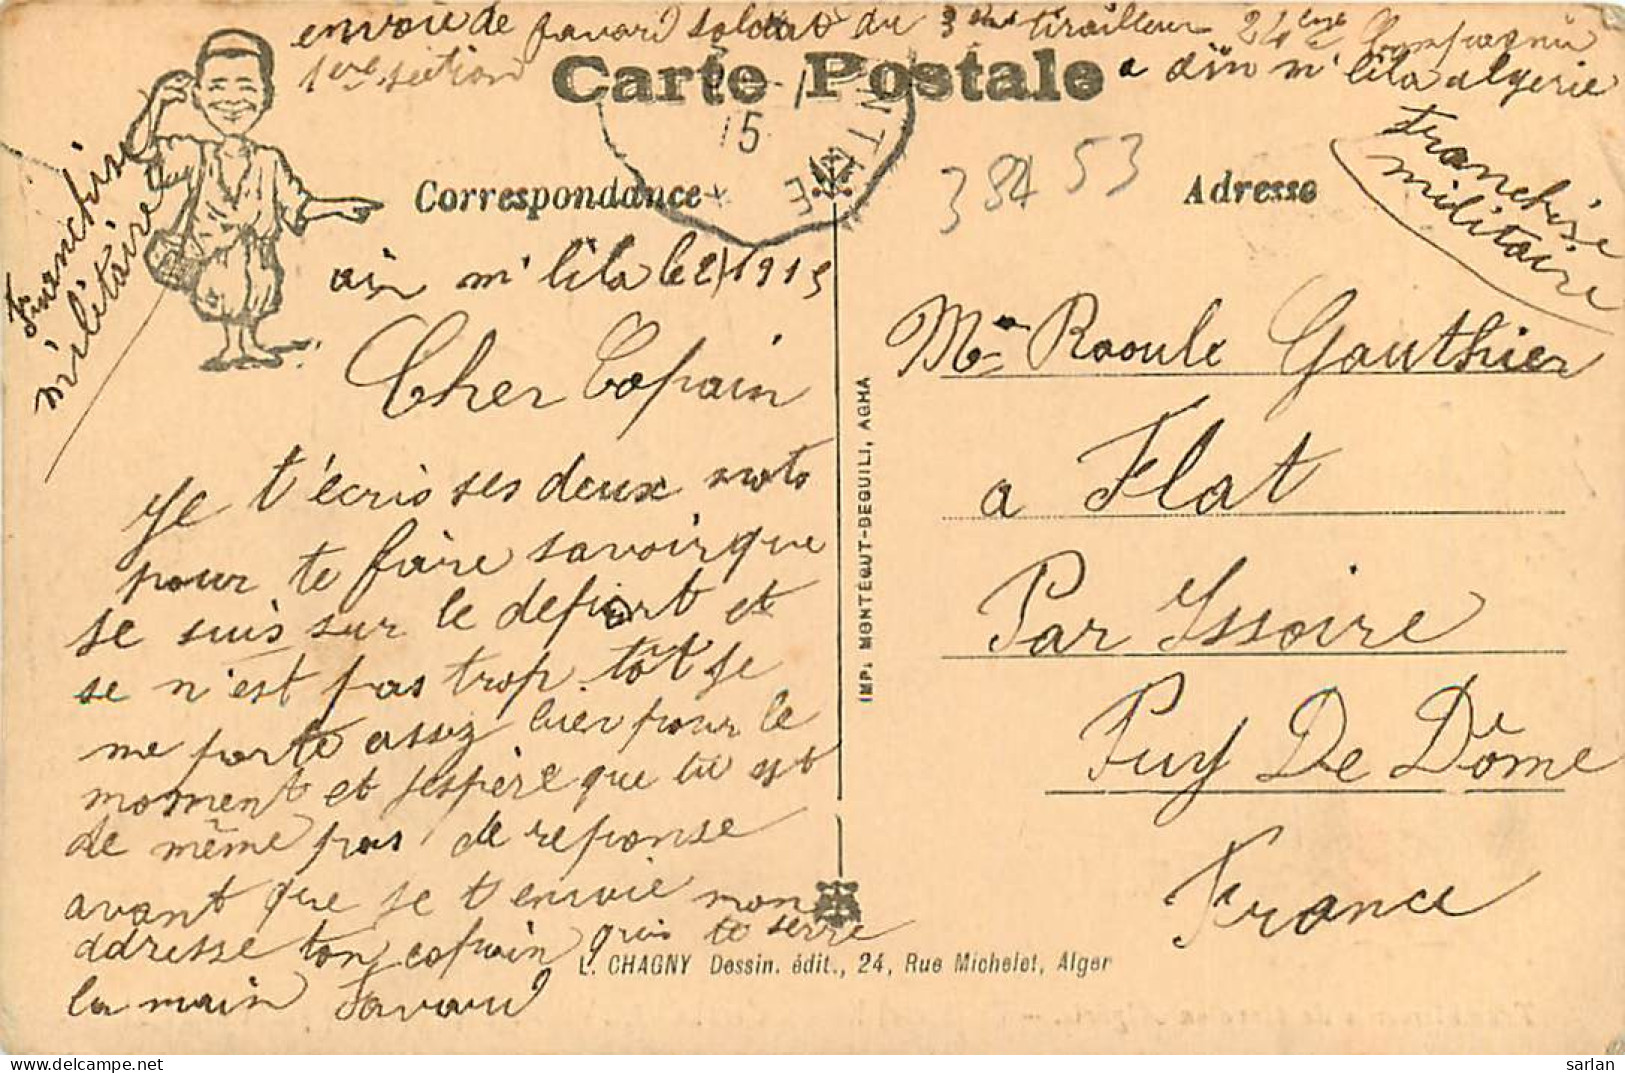 envoie de favard soldat du 3eme tirailleur 24eme Compagnie
1ere section
a aïn m'lila algerie
Carte Postale
15
38453
Franchise
militaire
Franchise
militaire
Correspondance
Adresse
ain m'lila le 2/1 1915
Cher Copain
Je t'écris ses deux mots
pour te faire savoir que
se suis sur le depart et
se n'est pas trop tôt Je
me porte assez bien pour le
moment et J'espère que tu est
de même pas de reponse
avant que se t'envoie mon
adresse ton copain qui te serre
la main Favard
Mr Raoule Gauthier
a Flat
Par Issoire
Puy De Dôme
France
IMP. MONTEGUT-DEGUILI, AGHA
L. CHAGNY Dessin. édit., 24, Rue Michelet, Alger
sarlan